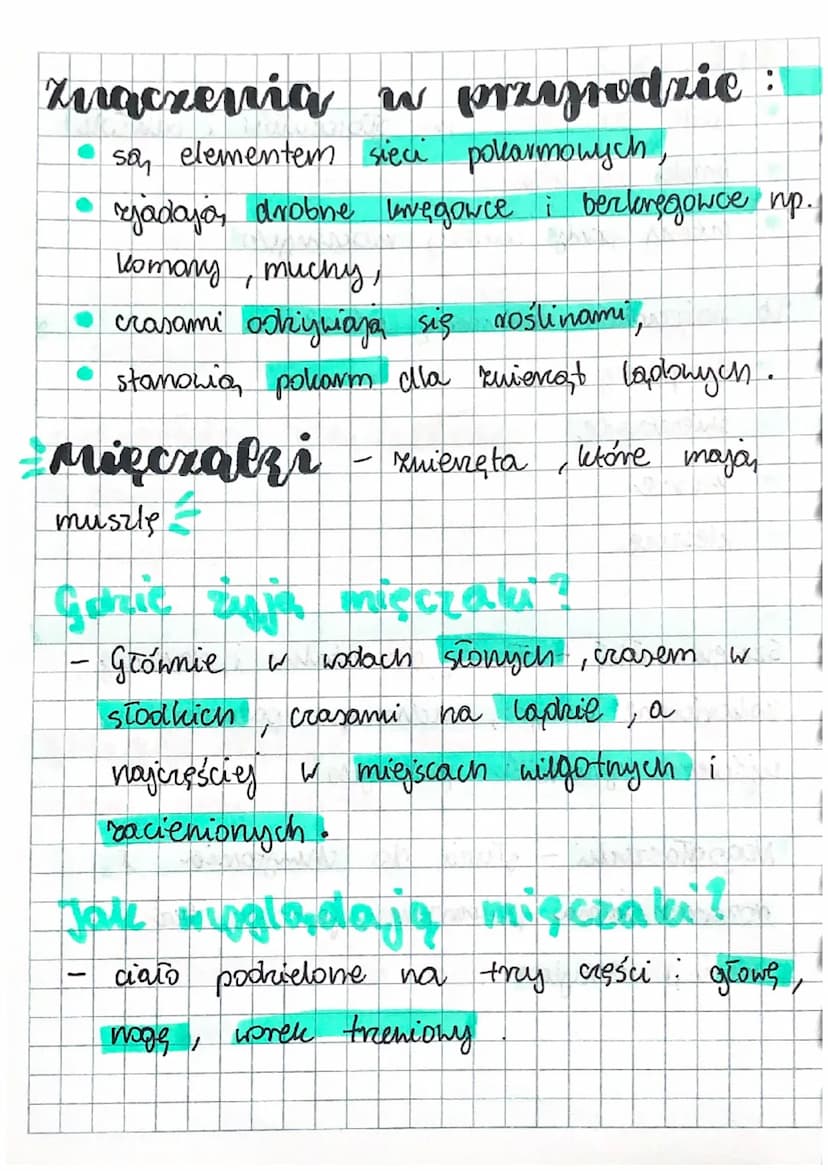 Znaczenia w przyrodzie :
• są elementem sieci pokarmowych,
• zjadają drobne kręgowce i bezkręgowce np.
komary, muchy,
• czasami odżywiają się roślinami,
• stanowią pokarm dla zwierząt lądowych.
Mięczaki - zwierzęta, które mają
muszlę
Gdzie żyją mięczaki?
- Głównie w wodach słonych, czasem w
słodkich, czasami na lądzie, a
najczęściej w miejscach wilgotnych i
zacienionych.
Jak wyglądają mięczaki?
- ciało podzielone na trzy części : głowę,
nogę, worek trzewiowy.